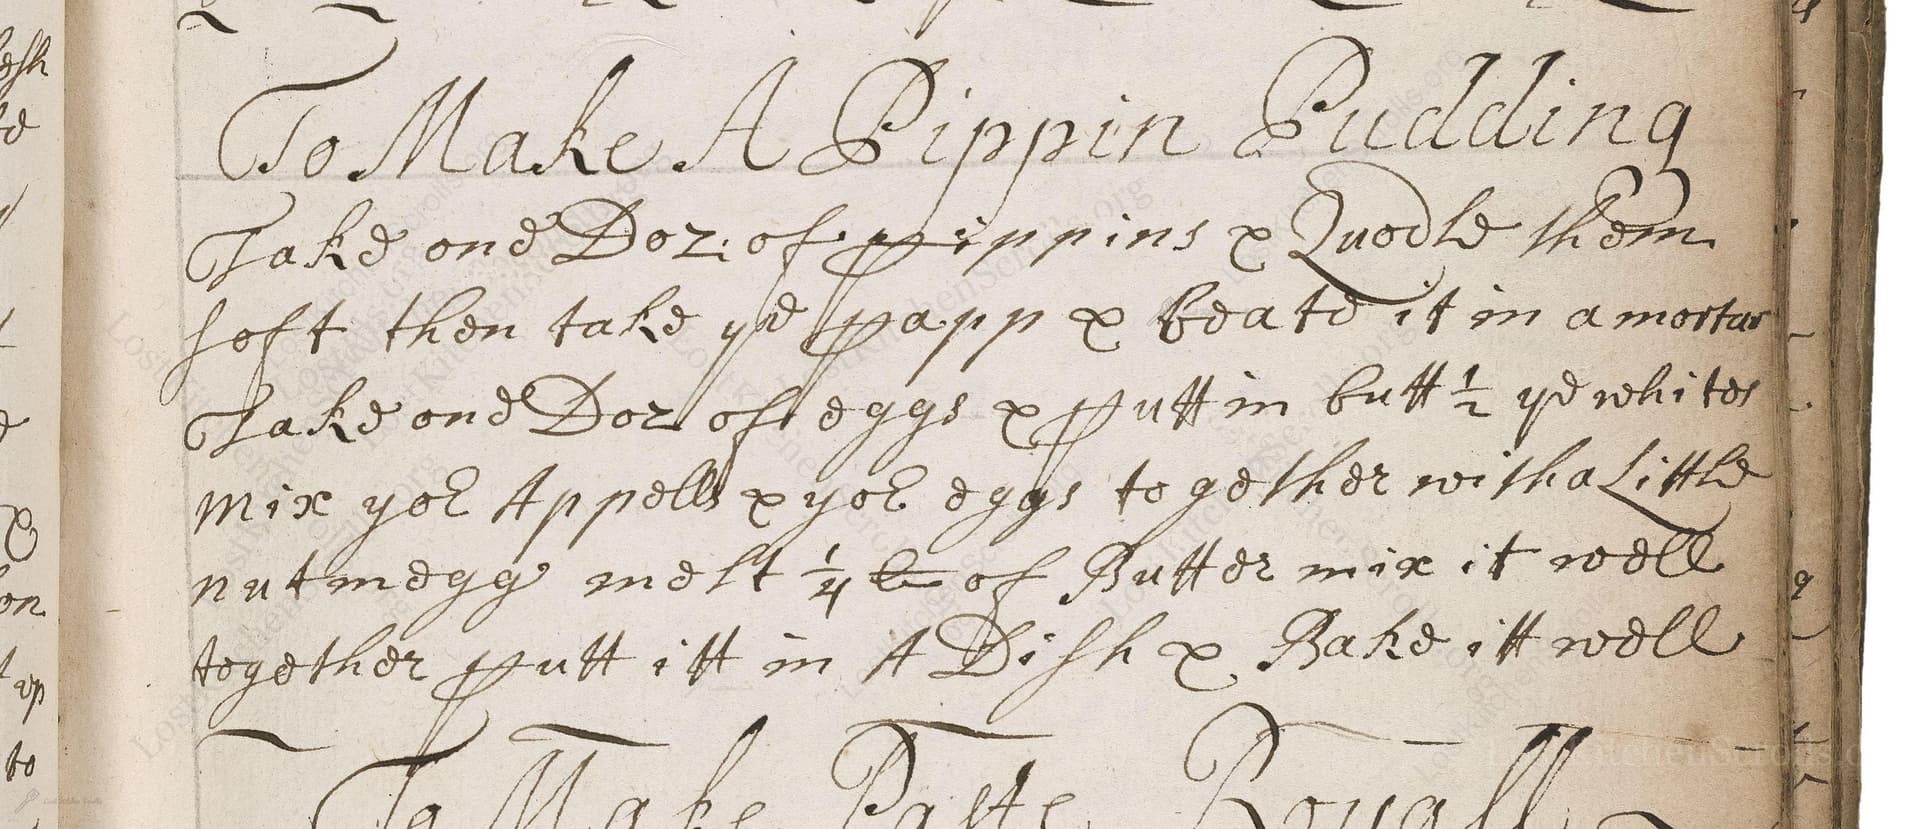 To Make A Pippin Pudding
Take one Doz: of pippins & Quodle them
soft then take ye papp & beate it in a mortar
Take one Doz of eggs & putt in butt 1/2 ye whites
mix yor Appells & yor eggs together with a Little
nutmegg melt 1/4 lb of Butter mix it well
together putt itt in A Dish & Bake itt well
To Make Paste Royall